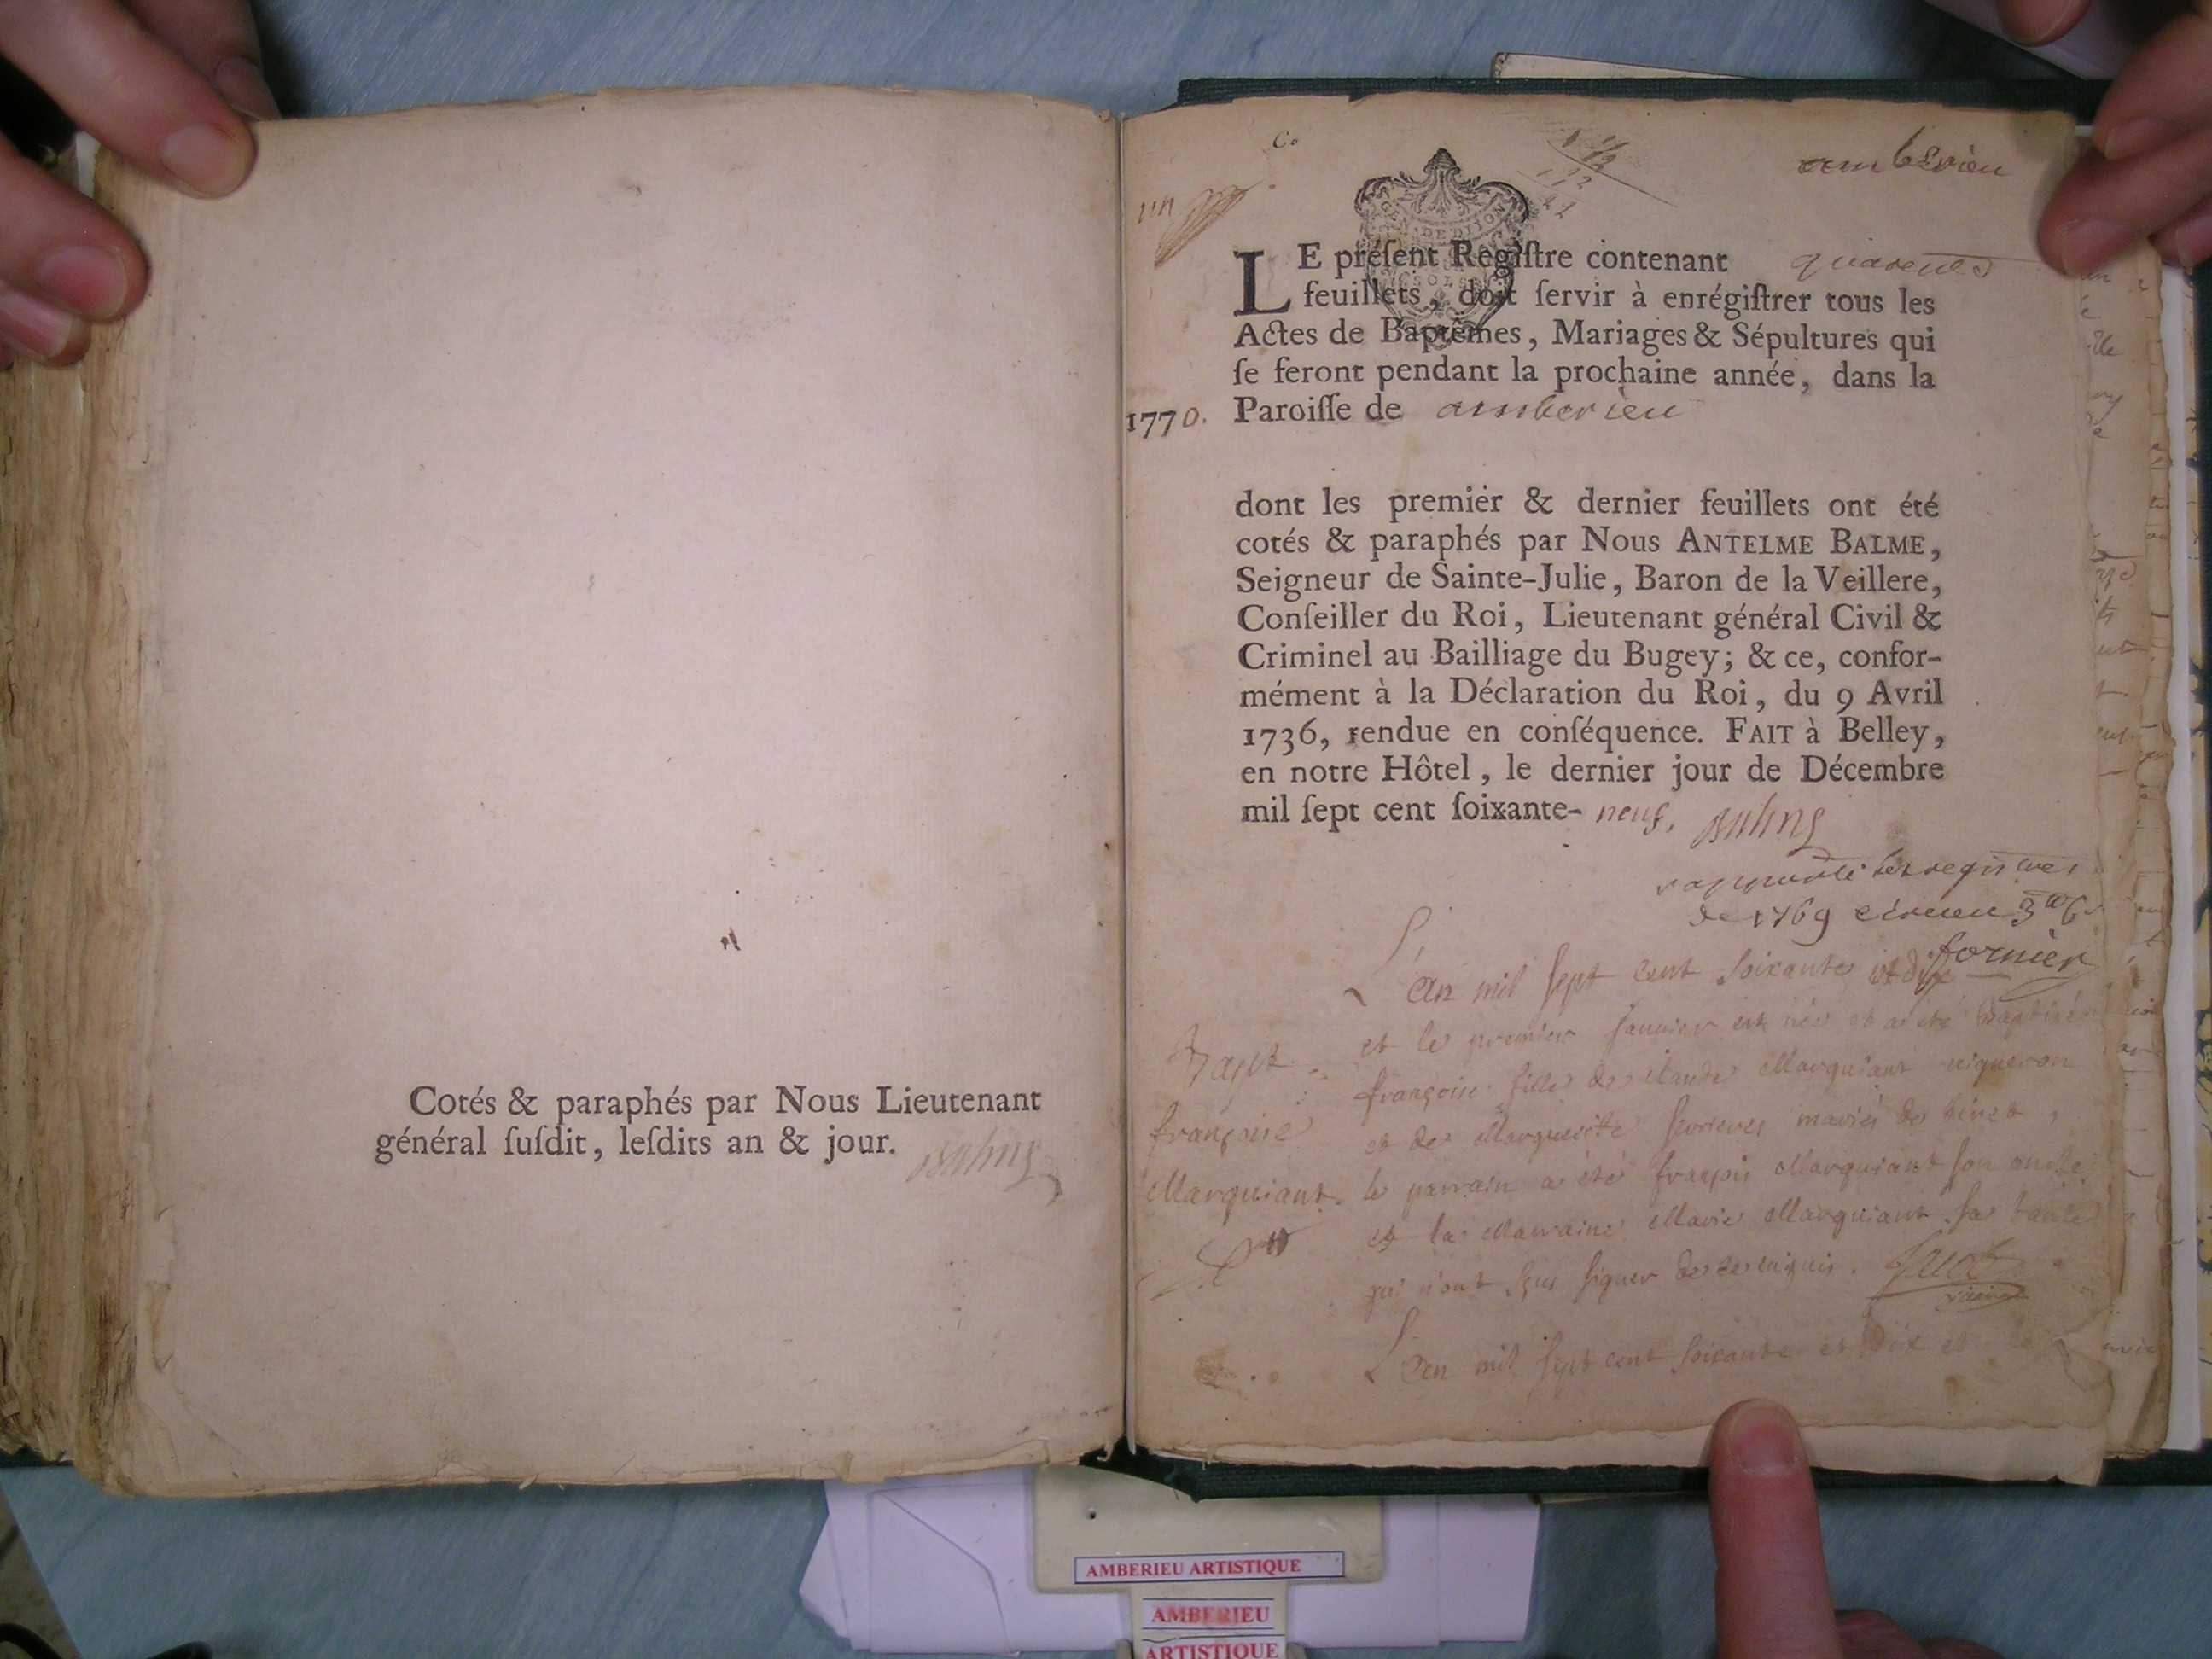 Cotés & paraphés par Nous Lieutenant
général ſuſdit, leſdits an & jour.
amberieu
un
LE préſent Regiſtre contenant quarente
feuillets, doit ſervir à enrégiſtrer tous les
Actes de Baptêmes, Mariages & Sépultures qui
ſe feront pendant la prochaine année, dans la
1770. Paroiſſe de amberieu
dont les premier & dernier feuillets ont été
cotés & paraphés par Nous ANTELME BALME,
Seigneur de Sainte-Julie, Baron de la Veillere,
Conſeiller du Roi, Lieutenant général Civil &
Criminel au Bailliage du Bugey; & ce, confor-
mément à la Déclaration du Roi, du 9 Avril
1736, rendue en conſéquence. FAIT à Belley,
en notre Hôtel, le dernier jour de Décembre
mil ſept cent ſoixante- neuf.
rapporté les registres
de 1769
fornier
L'an mil sept cent soixante et dix
et le premier janvier est née et a été Baptisée
Bapt.
françoise fille de Claude Marquiant vigneron
françoise
et de Marguerite mariés
Marquiant. le parrain a été françois Marquiant son oncle
et la Marraine Marie Marquiant sa tante
qui n'ont sçu signer de ce enquis.
L'an mil sept cent soixante et dix et le
AMBERIEU ARTISTIQUE
AMBERIEU
ARTISTIQUE